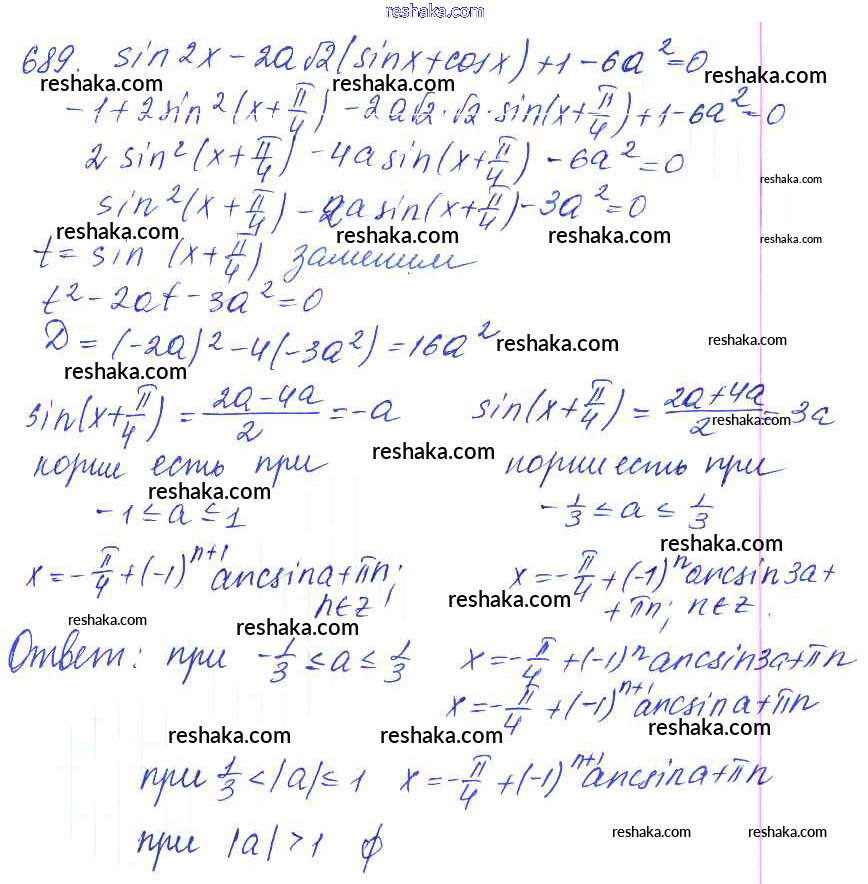 reshaka.com
689. sin 2x - 2a√2 (sinx + cosx) + 1 - 6a² = 0
reshaka.com reshaka.com reshaka.com
-1 + 2sin²(x + π/4) - 2a√2 · √2 · sin(x + π/4) + 1 - 6a² = 0
2 sin²(x + π/4) - 4a sin(x + π/4) - 6a² = 0
reshaka.com
sin²(x + π/4) - 2a sin(x + π/4) - 3a² = 0
reshaka.com reshaka.com reshaka.com reshaka.com
t = sin (x + π/4) заменим
t² - 2at - 3a² = 0
D = (-2a)² - 4(-3a²) = 16a²
reshaka.com reshaka.com
reshaka.com
sin(x + π/4) = (2a - 4a)/2 = -a sin(x + π/4) = (2a + 4a)/2 = 3a
reshaka.com
reshaka.com
корни есть при корни есть при
reshaka.com
-1 ≤ a ≤ 1 -1/3 ≤ a ≤ 1/3
reshaka.com
x = -π/4 + (-1)ⁿ⁺¹ arcsin a + πn; x = -π/4 + (-1)ⁿ arcsin 3a +
n∈z + πn; n∈z.
reshaka.com
reshaka.com reshaka.com
Ответ: при -1/3 ≤ a ≤ 1/3 x = -π/4 + (-1)ⁿ arcsin 3a + πn
x = -π/4 + (-1)ⁿ⁺¹ arcsin a + πn
reshaka.com reshaka.com reshaka.com
при 1/3 < |a| ≤ 1 x = -π/4 + (-1)ⁿ⁺¹ arcsin a + πn
при |a| > 1 ϕ
reshaka.com reshaka.com